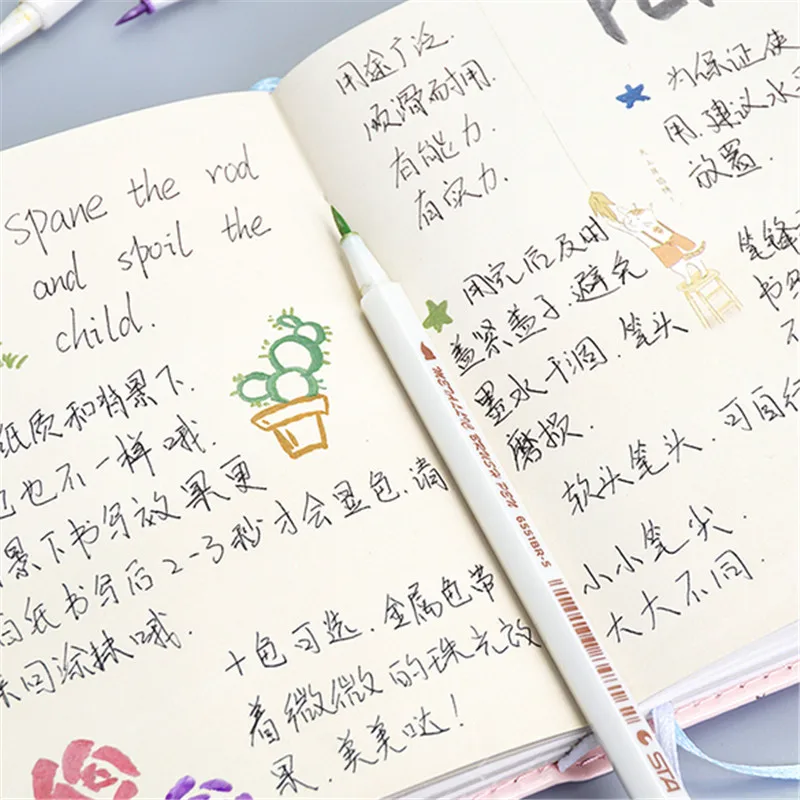 Spane the rod
and spoil the
child.
纸质和背景下.
也不一样哦.
景下书写效果更
白纸书写后2-3秒才会显色.请
来回涂抹哦.
十色可选.金属色带
着微微的珠光效
果.美美哒!
用途广泛.
顺滑而耐用.
有能力.
有实力.
为保证使
用.建议水平
放置.
用完后及时
盖紧盖子.避免
墨水干涸.笔头
磨损.
笔锋
书写
不
软头笔头.可自行
小小笔尖.
大大不同.
METALLIC BRUSH PEN 6551BR-5
STA